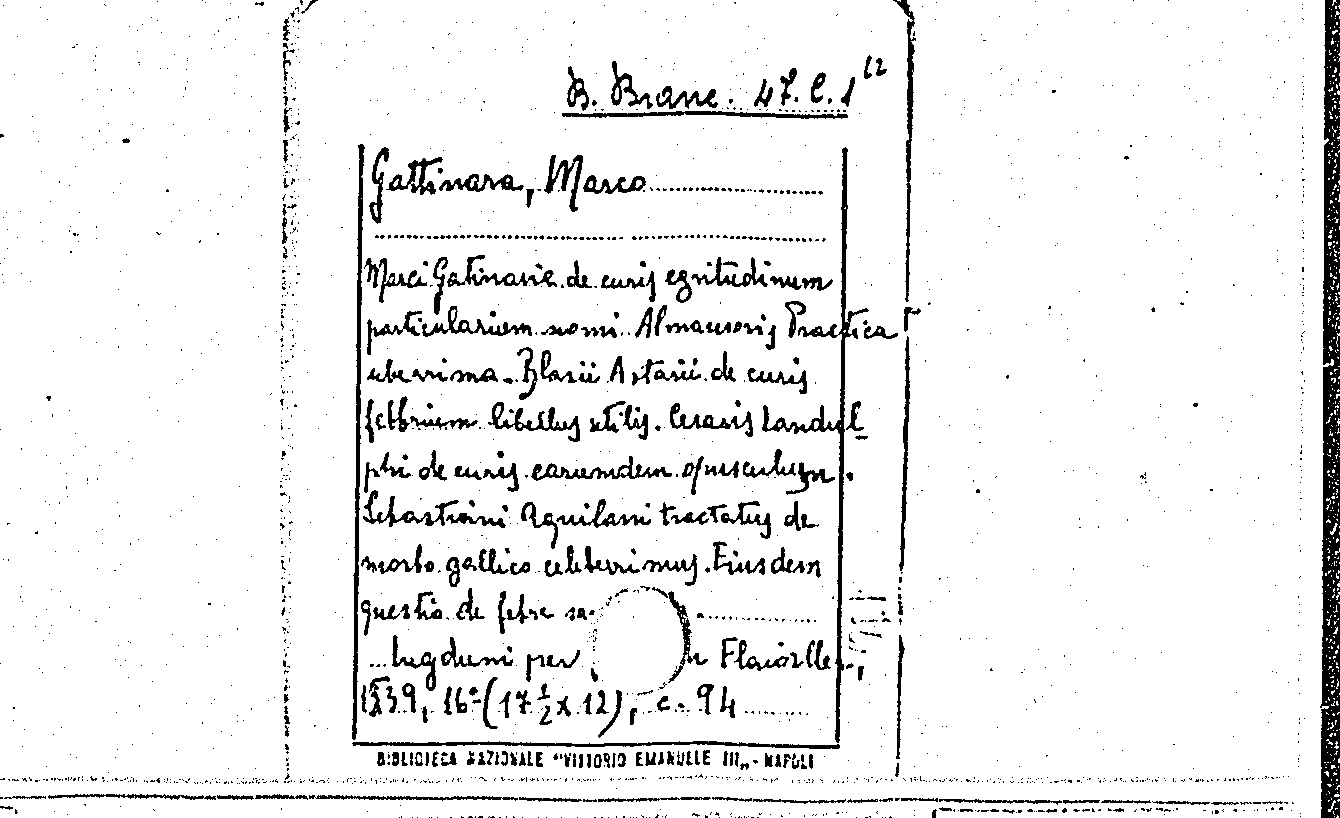 B. Branc. 47. C. 1 12
Gattinara, Marco
Marci Gatinarie de curis egritudinum
particularium noni Almansoris Practica
uberrima. Blasii Astarii de curis
febbrium libellus utilis. Cesaris Landul
phi de curis earumdem opusculum.
Sebastiani Aquilani tractatus de
morbo gallico celeberrimus. Eiusdem
questio de febre
lugduni per
1539, 16º (17 ½ x 12), c. 94
BIBLIOTECA NAZIONALE "VITTORIO EMANUELE III„ - NAPOLI